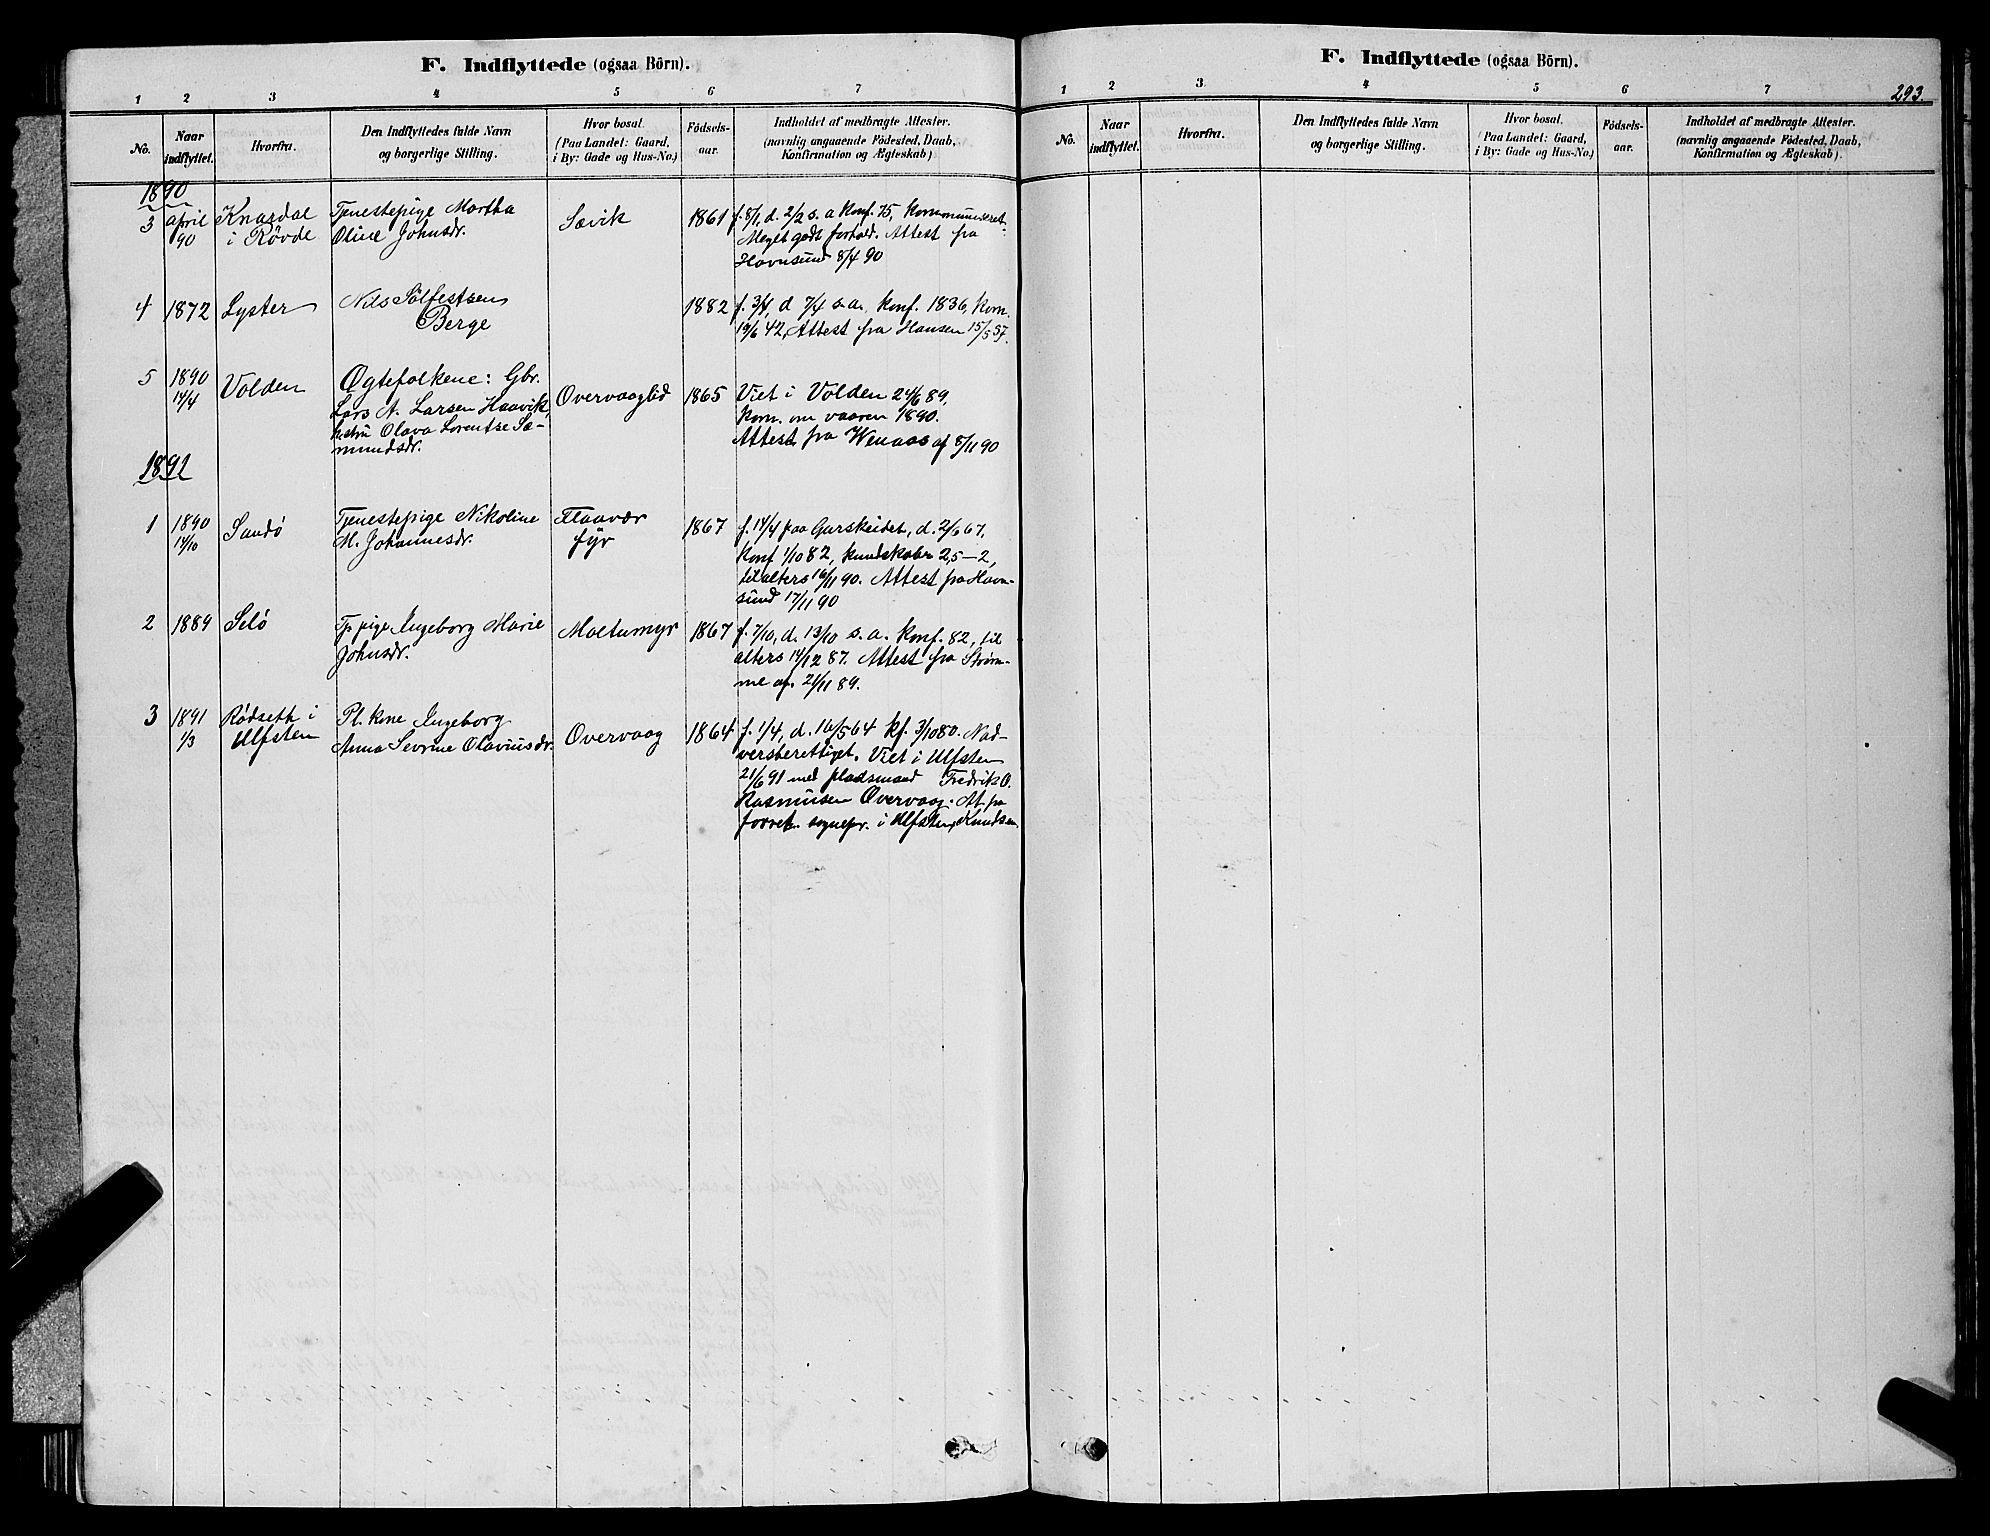 F. Indflyttede (ogsaa Börn).
1 2 3 4 5 6 7
No. Naar indflyttet. Hvorfra. Den Indflyttedes fulde Navn og borgerlige Stilling. Hvor bosat. (Paa Landet: Gaard, i By: Gade og Hus-No.) Födsels-aar. Indholdet af medbragte Attester. (navnlig angaaende Födested, Daab, Konfirmation og Ægteskab).
1890
3 april Knardal Tjenestepige Martha Sævik 1861 f. 8/1, d. 2/2 s. a. Konf. 75, Kommuniceret.
90 i Røvde Oline Johnsdr. Meget godt forhold. Attest fra
Havnsund 8/4 90
4 1872 Lyster Nils Sølfestsen 1882 f. 3/4, d 7/4 s.a. Konf. 1836, Kom.
Berge 19/6 42, Attest fra Hansen 15/5 57.
5 1890 Volden Ægtefolkene: Gbr. Overvaaglid 1865 Viet i Volden 24/6 89.
14/4 Lars N. Larsen Haavik, Kom. om vaaren 1890.
hustru Olava Lorentse Sæ- Attest fra Wenaas af 8/11 90
mundsdr.
1891
1 1890 Sandö Tjenestepige Nikoline Flaavær 1867 f. 14/4 paa Garskeidet, d. 2/6 67,
14/10 M. Johannesdr. fyr Konf 1/10 82, kundskaber 2,5-2,
til alters 16/11 90. Attest fra Havn-
sund 17/11 90
2 1889 Selö Tj. pige Ingeborg Marie Moltumyr 1867 f. 7/10, d. 13/10 s. a. Konf. 82, til
Johnsdr. alters 14/12 87. Attest fra Strøm-
me af. 21/11 89.
3 1891 Rødseth i Pl. kone Ingeborg Overvaag 1864 f. 1/4, d. 16/5 64 kf. 3/10 80. Nad-
1/3 Ulfsten Anna Sevrine Olaviusdr. versberettiget. Viet i Ulfsten
21/6 91 med pladsmand Fredrik O.
Rasmusen Overvaag. At. fra
forret. sognepr. i Ulfsten, Knudsen.
F. Indflyttede (ogsaa Börn).
293.
1 2 3 4 5 6 7
No. Naar indflyttet. Hvorfra. Den Indflyttedes fulde Navn og borgerlige Stilling. Hvor bosat. (Paa Landet: Gaard, i By: Gade og Hus-No.) Födsels-aar. Indholdet af medbragte Attester. (navnlig angaaende Födested, Daab, Konfirmation og Ægteskab).